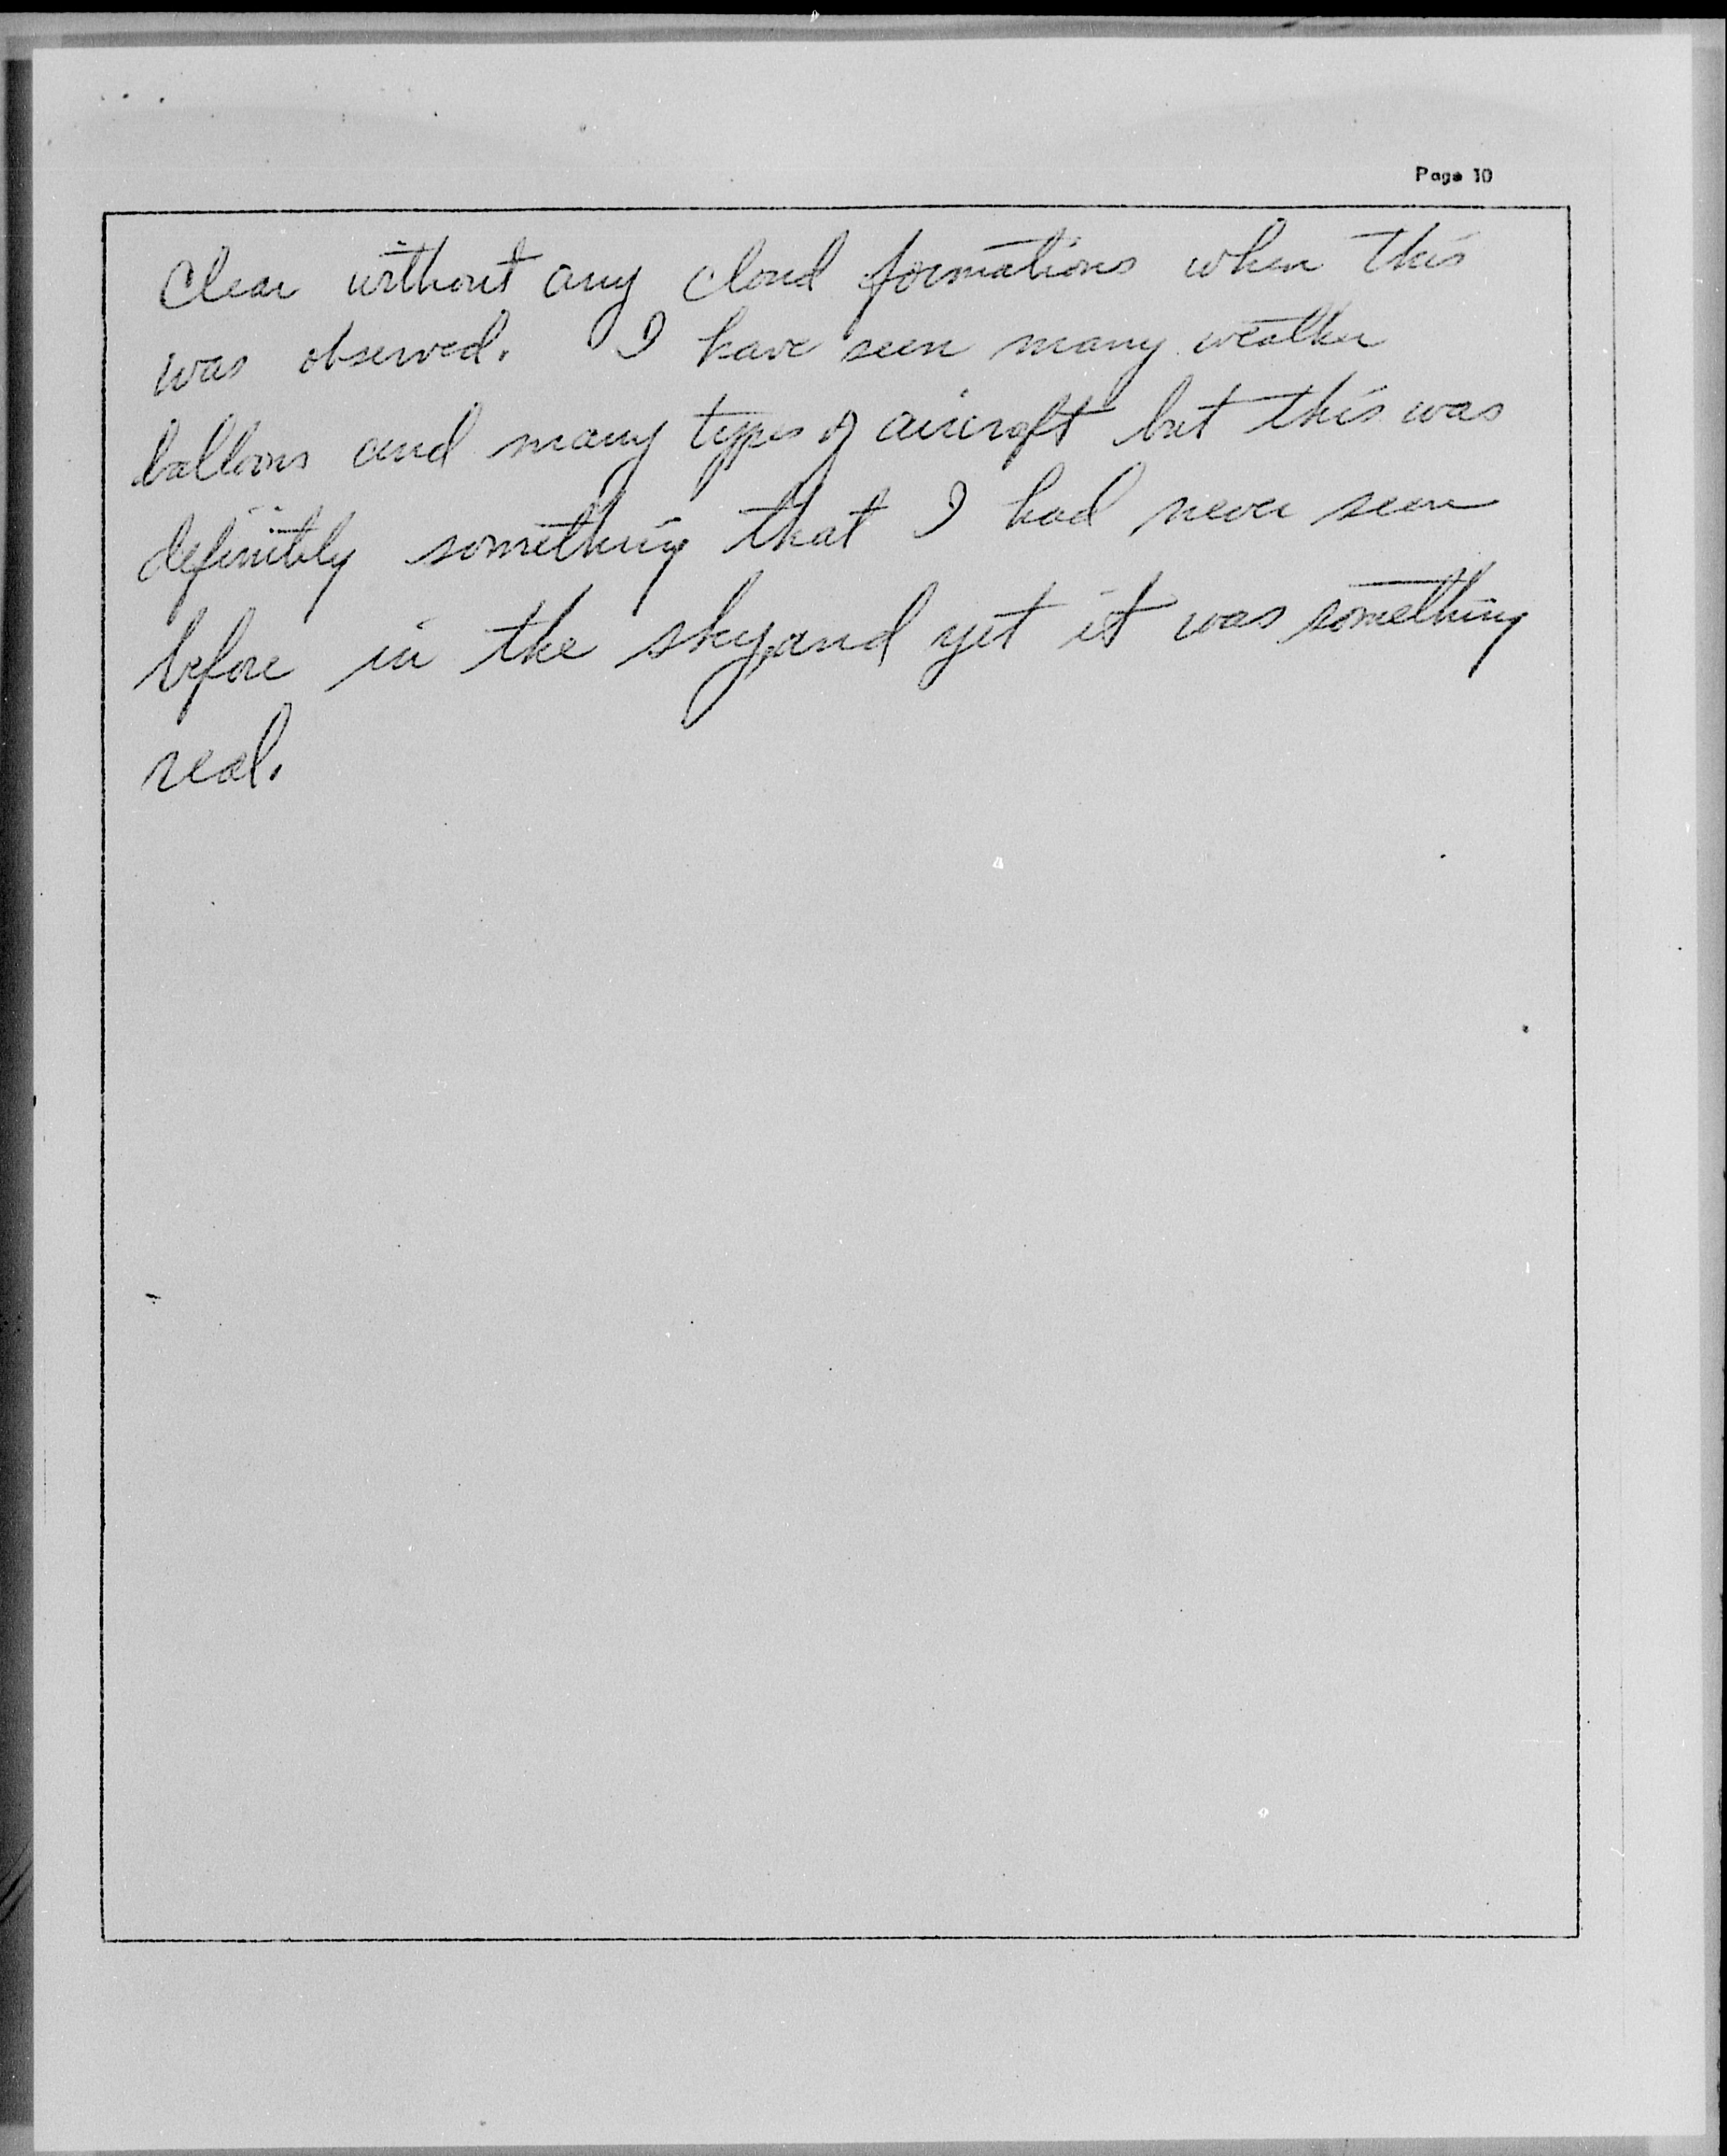 Page 10
Clear without any cloud formations when this
was observed. I have seen many weather
balloons and many types of aircraft but this was
definitely something that I had never seen
before in the sky, and yet it was something
real.